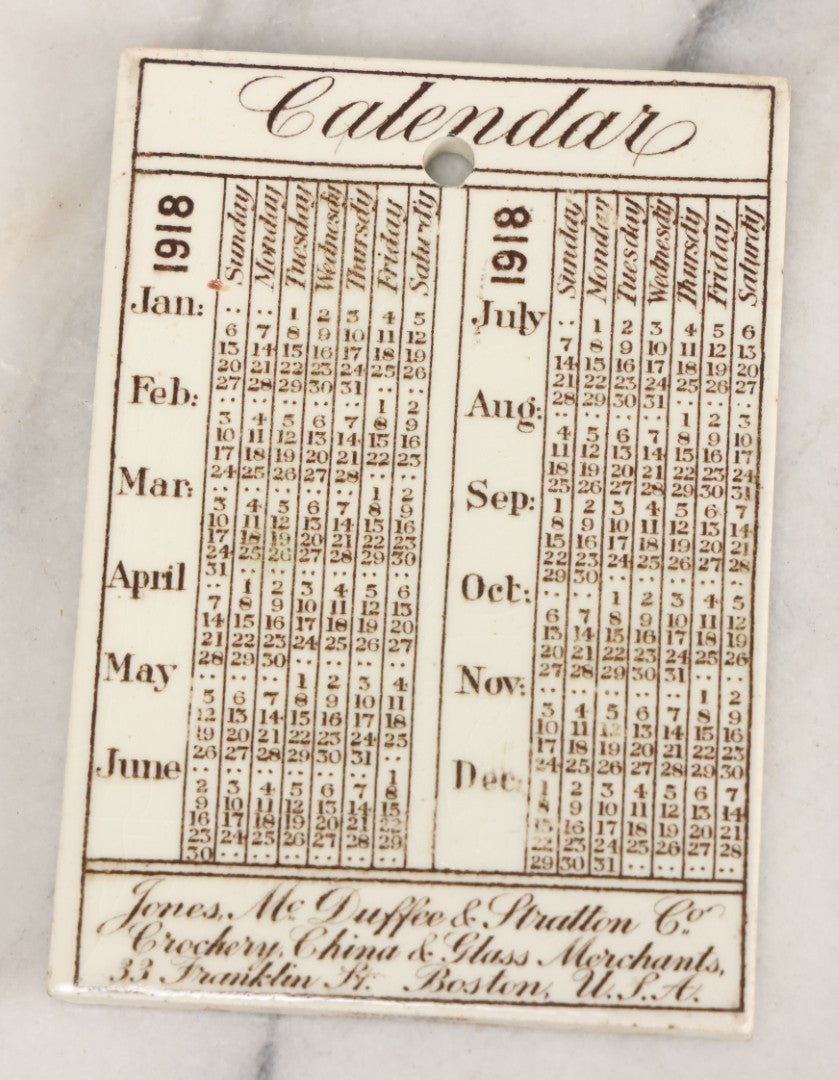 Calendar
1918 Sunday Monday Tuesday Wednesdy Thursdy Friday Saturdy
Jan: .. .. 1 2 3 4 5
6 7 8 9 10 11 12
13 14 15 16 17 18 19
20 21 22 23 24 25 26
27 28 29 30 31 .. ..
Feb: .. .. .. .. .. 1 2
3 4 5 6 7 8 9
10 11 12 13 14 15 16
17 18 19 20 21 22 23
24 25 26 27 28 .. ..
Mar: .. .. .. .. .. 1 2
3 4 5 6 7 8 9
10 11 12 13 14 15 16
17 18 19 20 21 22 23
24 25 26 27 28 29 30
31 .. .. .. .. .. ..
April .. 1 2 3 4 5 6
7 8 9 10 11 12 13
14 15 16 17 18 19 20
21 22 23 24 25 26 27
28 29 30 .. .. .. ..
May .. .. .. 1 2 3 4
5 6 7 8 9 10 11
12 13 14 15 16 17 18
19 20 21 22 23 24 25
26 27 28 29 30 31 ..
June .. .. .. .. .. .. 1
2 3 4 5 6 7 8
9 10 11 12 13 14 15
16 17 18 19 20 21 22
23 24 25 26 27 28 29
30 .. .. .. .. .. ..
1918 Sunday Monday Tuesday Wednesdy Thursdy Friday Saturdy
July .. 1 2 3 4 5 6
7 8 9 10 11 12 13
14 15 16 17 18 19 20
21 22 23 24 25 26 27
28 29 30 31 .. .. ..
Aug: .. .. .. .. 1 2 3
4 5 6 7 8 9 10
11 12 13 14 15 16 17
18 19 20 21 22 23 24
25 26 27 28 29 30 31
Sep: 1 2 3 4 5 6 7
8 9 10 11 12 13 14
15 16 17 18 19 20 21
22 23 24 25 26 27 28
29 30 .. .. .. .. ..
Oct: .. .. 1 2 3 4 5
6 7 8 9 10 11 12
13 14 15 16 17 18 19
20 21 22 23 24 25 26
27 28 29 30 31 .. ..
Nov: .. .. .. .. .. 1 2
3 4 5 6 7 8 9
10 11 12 13 14 15 16
17 18 19 20 21 22 23
24 25 26 27 28 29 30
Dec: 1 2 3 4 5 6 7
8 9 10 11 12 13 14
15 16 17 18 19 20 21
22 23 24 25 26 27 28
29 30 31 .. .. .. ..
Jones, Mc Duffee & Stratton Co.
Crockery, China & Glass Merchants,
33 Franklin St. Boston, U.S.A.